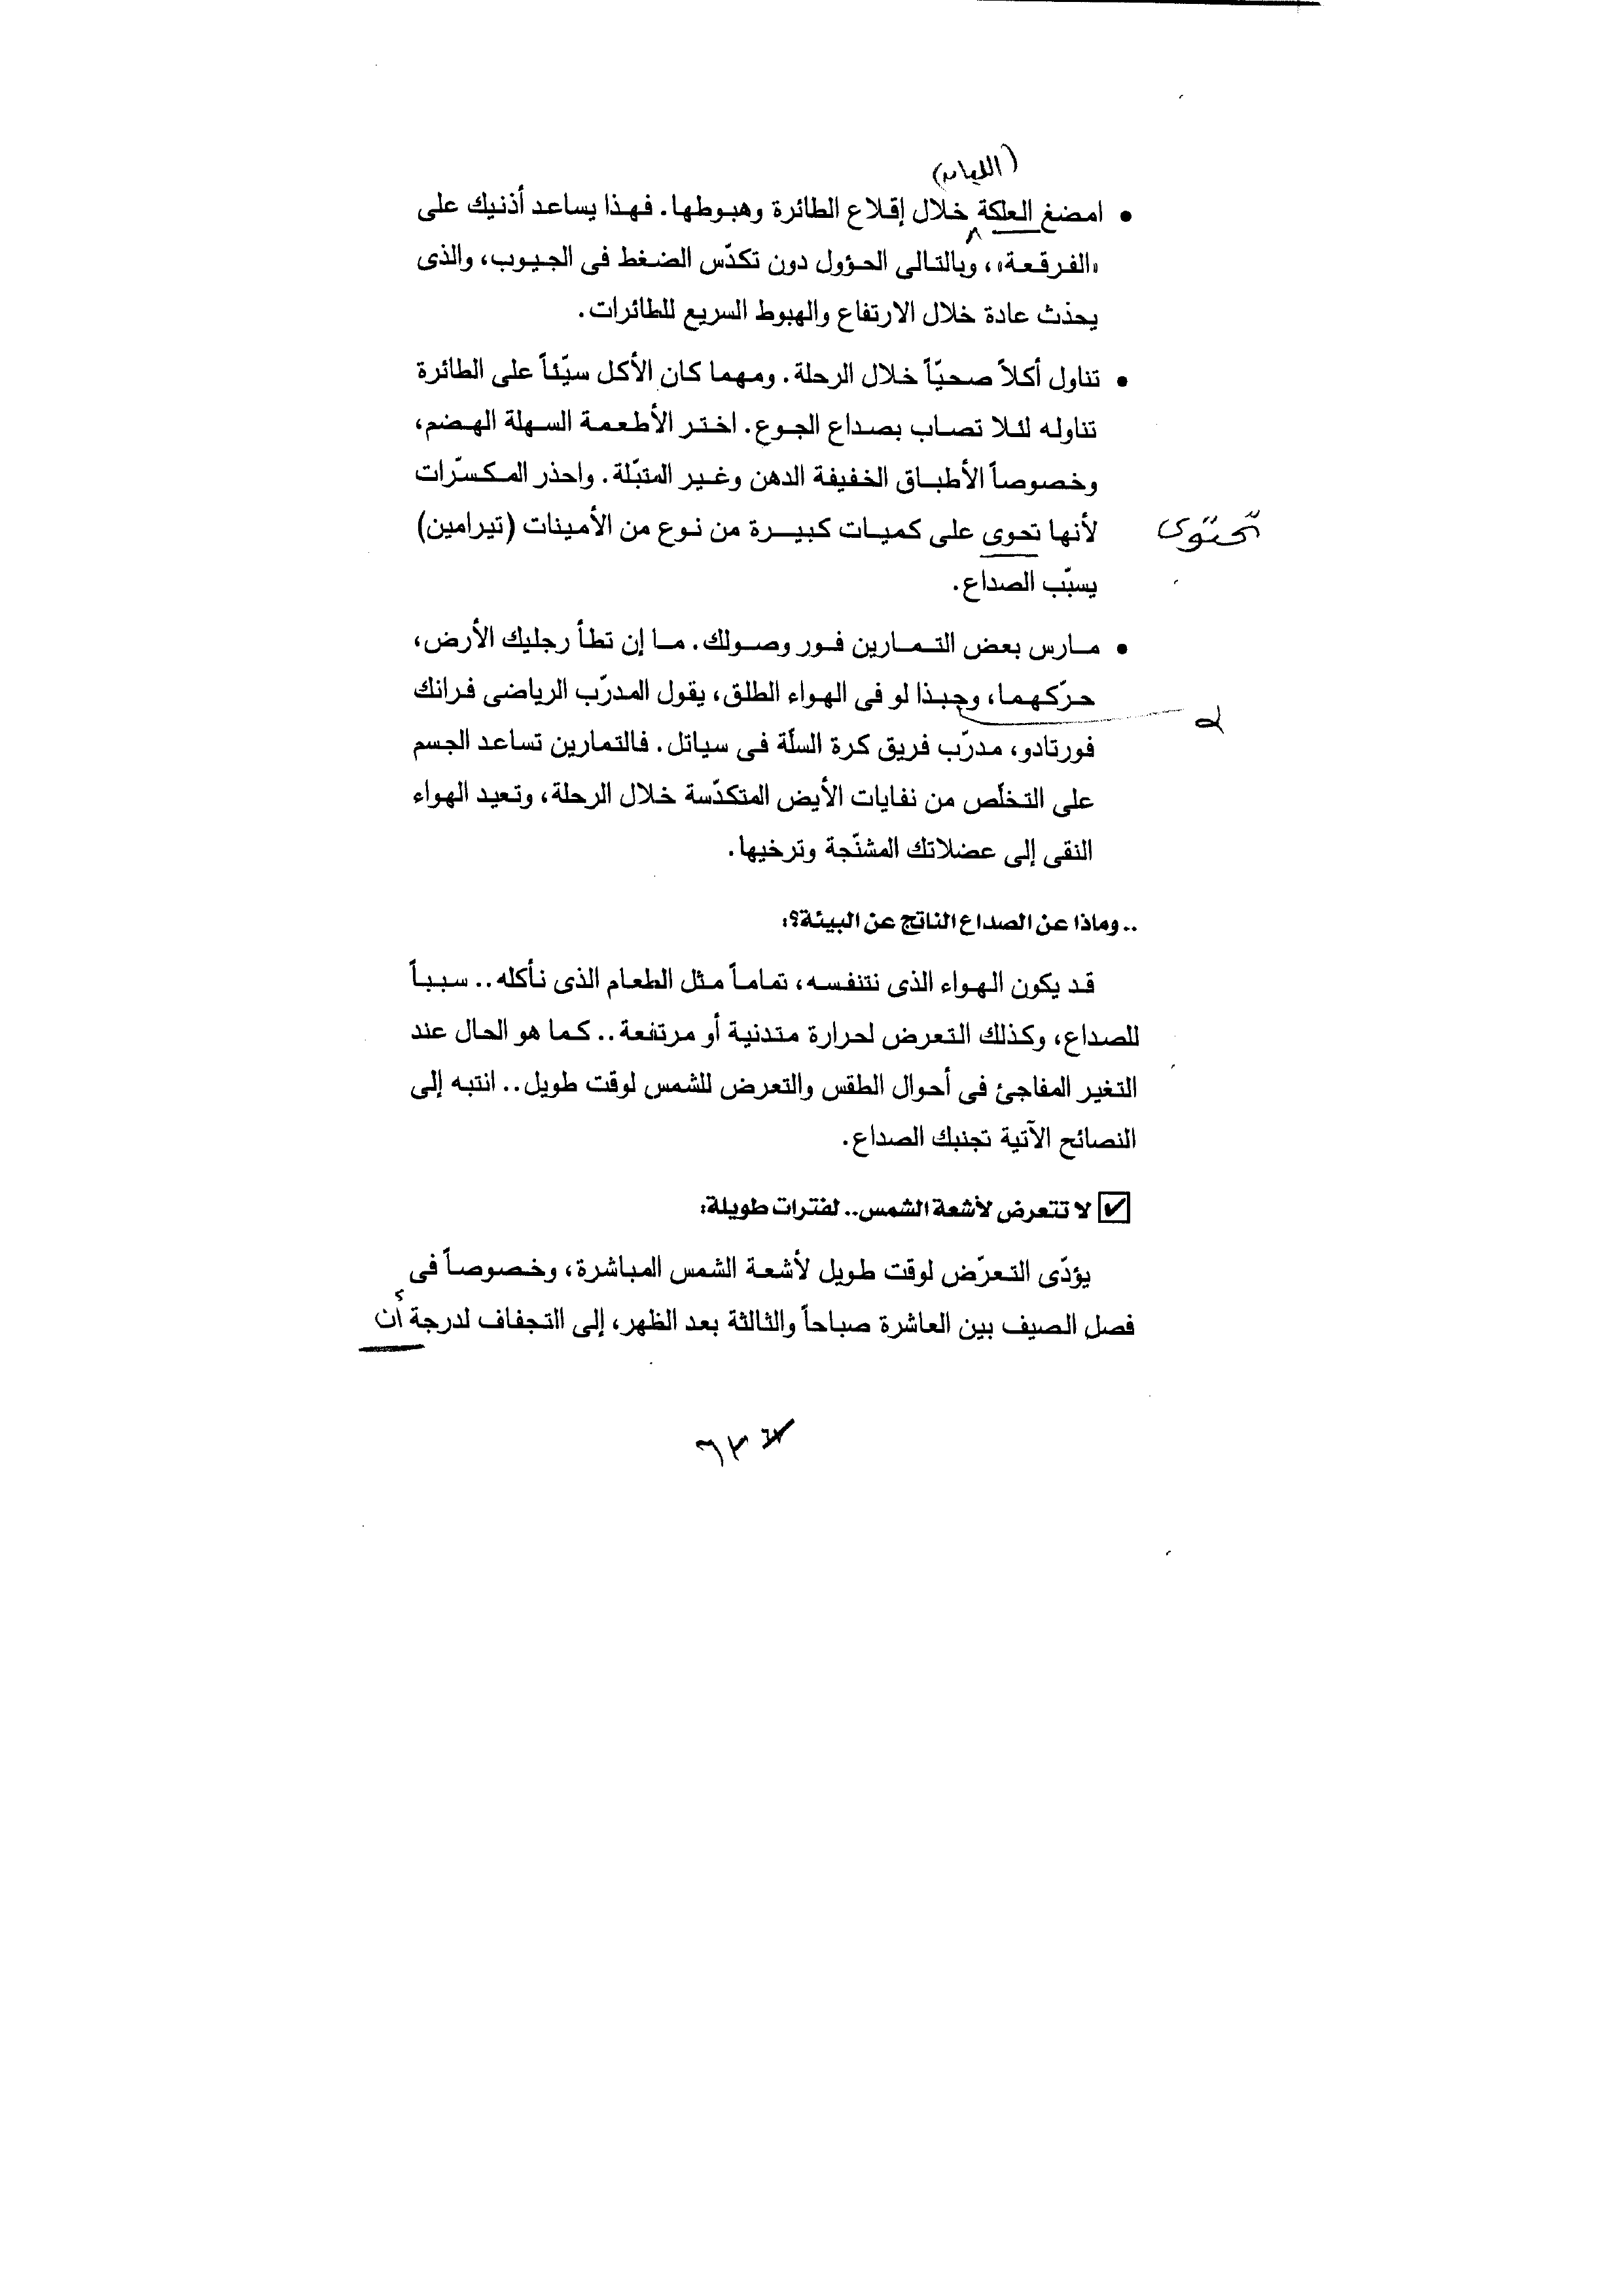 (اللبان)
• امضغ العلكة خلال إقلاع الطائرة وهبوطها. فهذا يساعد أذنيك على
«الفرقعة»، وبالتالى الحؤول دون تكدّس الضغط فى الجيوب، والذى
يحذث عادة خلال الارتفاع والهبوط السريع للطائرات.
• تناول أكلاً صحيّاً خلال الرحلة. ومهما كان الأكل سيّئاً على الطائرة
تناوله لئلا تصاب بصداع الجوع. اختر الأطعمة السهلة الهضم،
وخصوصاً الأطباق الخفيفة الدهن وغير المتبّلة. واحذر المكسّرات
لأنها تحوى على كميات كبيرة من نوع من الأمينات (تيرامين)
تحتوى
يسبّب الصداع.
• مارس بعض التمارين فور وصولك. ما إن تطأ رجليك الأرض،
حرّكهما، وجبذا لو فى الهواء الطلق، يقول المدرّب الرياضى فرانك
فورتادو، مدرّب فريق كرة السلّة فى سياتل. فالتمارين تساعد الجسم
على التخلّص من نفايات الأيض المتكدّسة خلال الرحلة، وتعيد الهواء
النقى إلى عضلاتك المشنّجة وترخيها.
.. وماذا عن الصداع الناتج عن البيئة؟:
قد يكون الهواء الذى نتنفسه، تماماً مثل الطعام الذى نأكله.. سبباً
للصداع، وكذلك التعرض لحرارة متدنية أو مرتفعة.. كما هو الحال عند
التغير المفاجئ فى أحوال الطقس والتعرض للشمس لوقت طويل.. انتبه إلى
النصائح الآتية تجنبك الصداع.
☑ لا تتعرض لأشعة الشمس.. لفترات طويلة:
يؤدّى التعرّض لوقت طويل لأشعة الشمس المباشرة، وخصوصاً فى
فصل الصيف بين العاشرة صباحاً والثالثة بعد الظهر، إلى االتجفاف لدرجة أن
٦٣